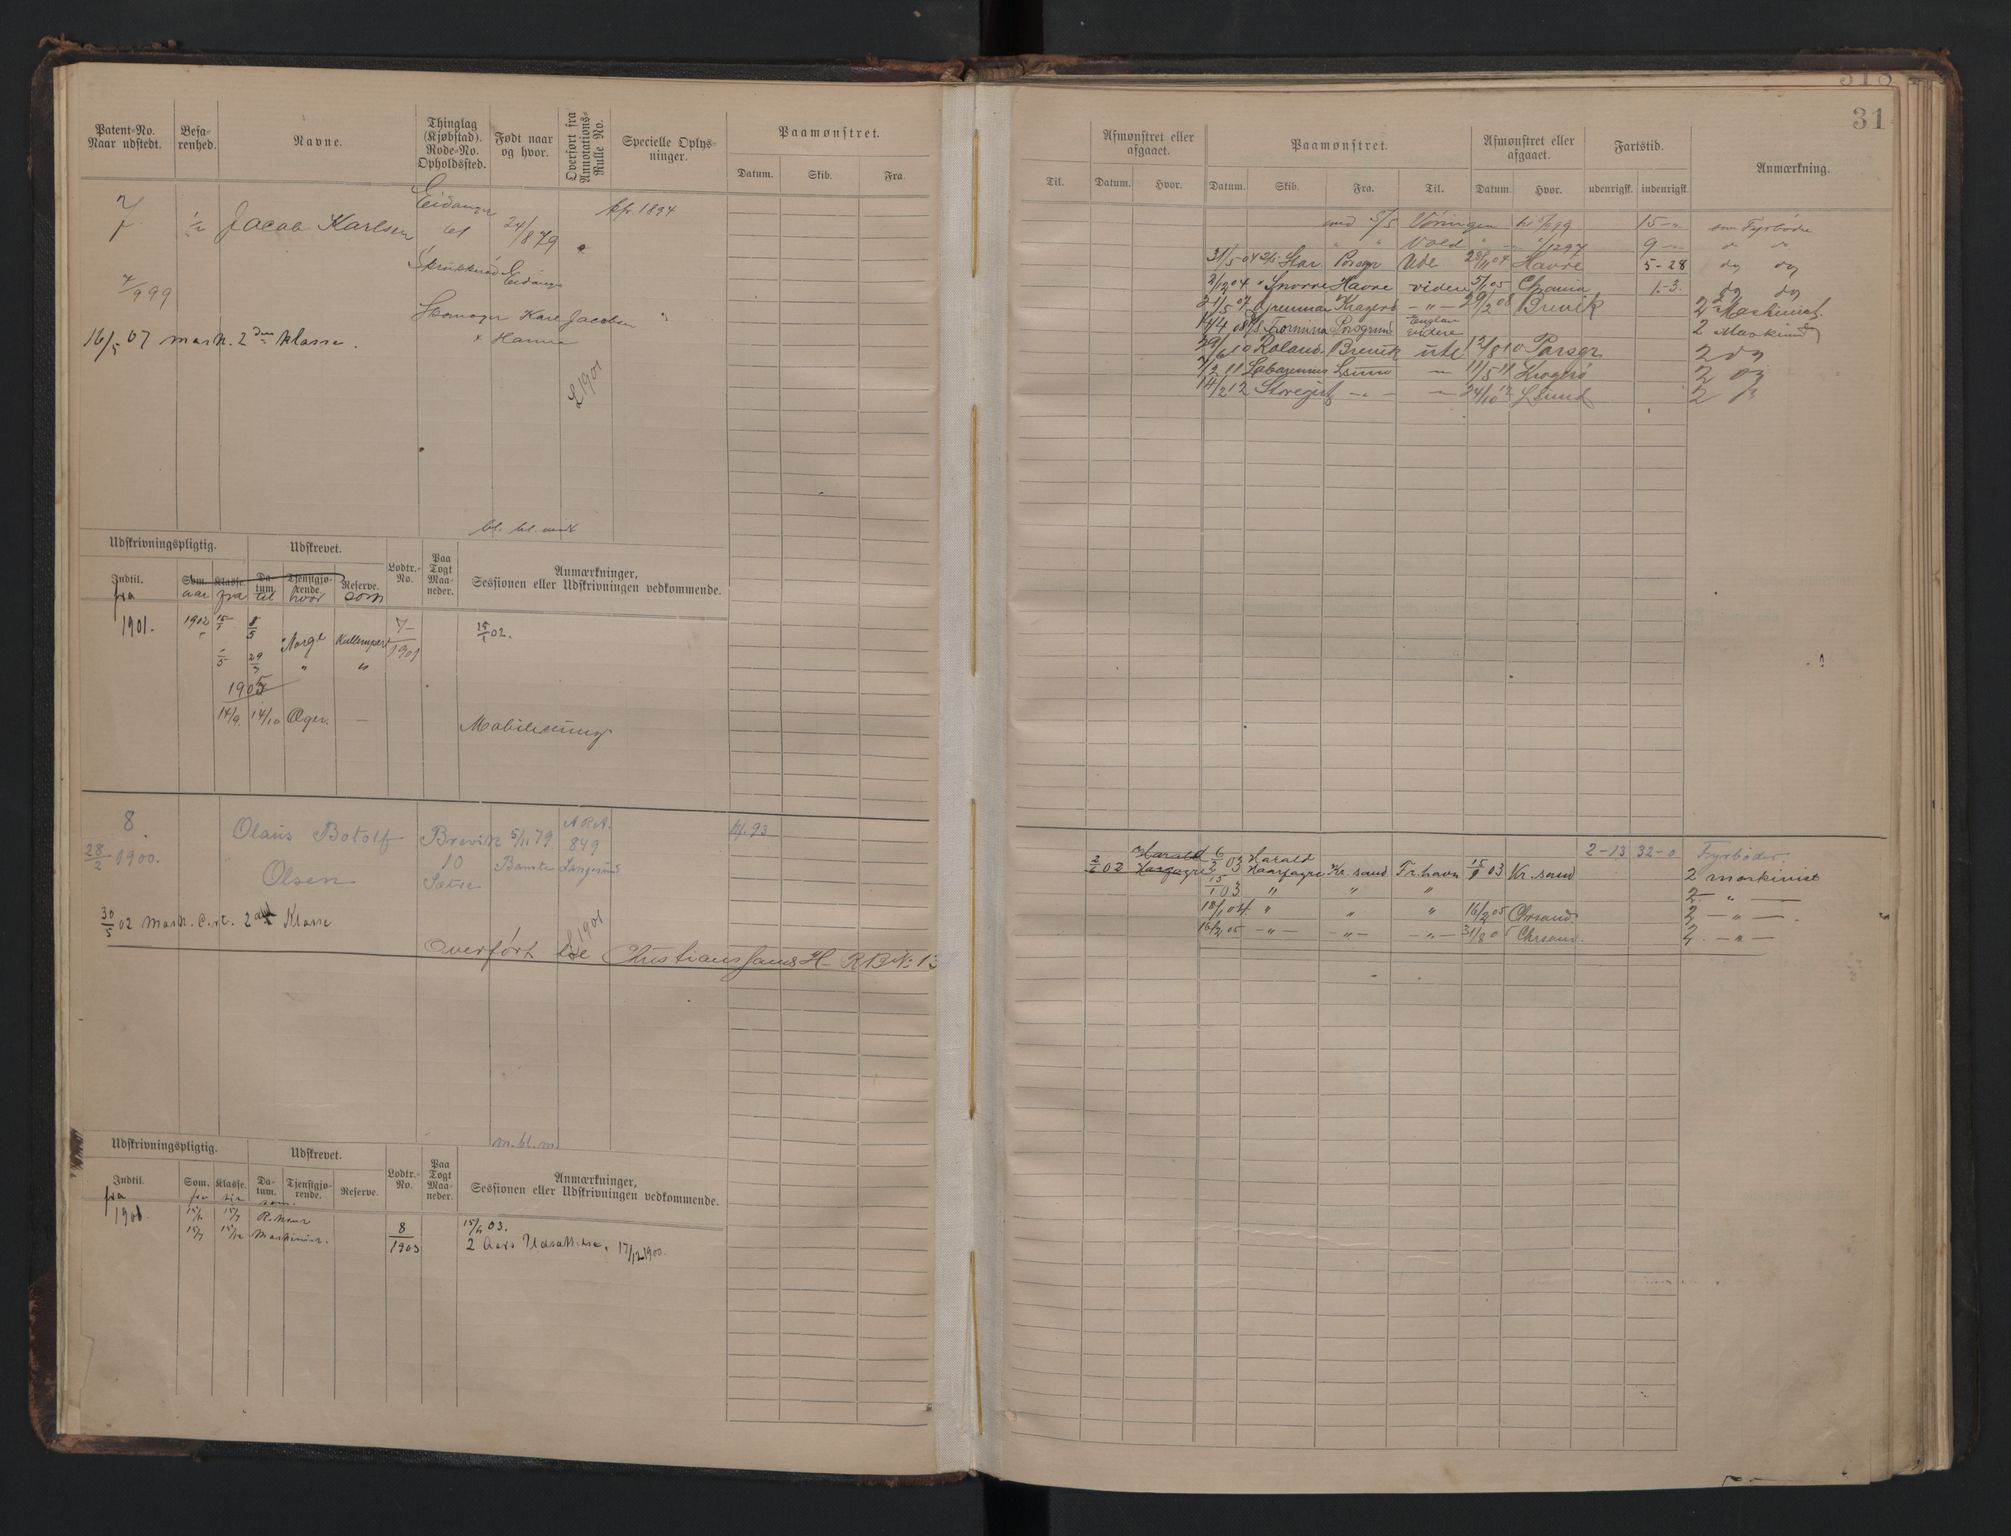 31
Patent-No. Naar udstedt.
Befa-renhed.
Navne.
Thinglag (Kjøbstad). Rode-No. Opholdssted.
Født naar og hvor.
Overført fra Annotations-Rulle No.
Specielle Oplys-ninger.
Paamønstret.
Datum. Skib. Fra.
7. ½ Jacob Karlsen Eidanger 61 24/8 79 kfr. 1894
7/9 99
Eidanger
Karl Jacobsen
16/5 07 mask. 2den klasse. Hanna
L 1901
bl. bl. midt
Udskrivningspligtig. Udskrevet. Lodtr.-No. Paa Togt Maa-neder. Anmærkninger, Sessionen eller Udskrivningen vedkommende.
Indtil. Som. Klasse. Da-tum. Tjenstgjø-rende. Reserve.
fra aar fra til hvor som
1901. 1902 8/5 Norge Kullemper 7/1901 15/1 02.
1/5 29/3 " "
1905
14/9. 14/10 Æger. — Mobilisering
8. Olaus Botolf Brevik 5/11 79 A.R.A. 849 kf. 93
28/2 1900. Olsen 10 Sætre Bamle Langesund
30/5 02 Mask. Cert. 2den Klasse
L 1901
Overført til Christianssands H- R B No 13
m. bl. m
Udskrivningspligtig. Udskrevet. Lodtr.-No. Paa Togt Maa-neder. Anmærkninger, Sessionen eller Udskrivningen vedkommende.
Indtil. Som. Klasse. Da-tum. Tjenstgjø-rende. Reserve.
fra fra til som
1901. 15/1 15/7
15/7 15/12 Maskinist. 8/1903 15/1 03.
2 Aars Udsættelse. 17/12 1900.
Afmønstret eller afgaaet. Paamønstret. Afmønstret eller afgaaet. Fartstid. Anmærkning.
Til. Datum. Hvor. Datum. Skib. Fra. Til. Datum. Hvor. udenrigsk. indenrigsk.
med 5/5 Vøringen 15-" som Fyrbøder
" " Vold 9-" d d
31/5 04 Star Porsgr Ude 28/11 04 Havre 5-28 do do
2/12 04 Snorre Havre videre 5/1 05 1-3. do do
21/5 07 Grenmar Kragerø -"- 29/2 08 Brevik 2 Maskinist.
14/4 08 Fiorminna Porsgrund England videre 2 Maskinist
29/6 10 Roland Brevik ude 12/8 10 Porsgr 2 do
7/2 11 Labarenius Lsund — 11/5 11 Kragerø 2 do
14/2 12 Storegut -"- — 24/10 12 Lsund 2 do
2-13 32-0 Fyrbøder.
2/6 02 Harald Haarfagre 6/2 03 Harald Haarfagre Kr.sand Fr.havn 15/9 03 Kr.sand 2 maskinist
15/1 03 " " " 2 — " —
18/1 04 " " " 16/2 05 Chrsand 2 — " — .
16/2 05 -"- -"- -"- 31/8 05 Chrsand. 2. -"-